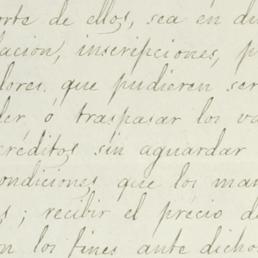 orte de ellos, sea en di
lación, inscripciones, p
lores que pudieren ser
der ó traspasar los va
créditos sin aguardar
ondiciones que los man
s; recibir el precio de
n los fines ante dicho